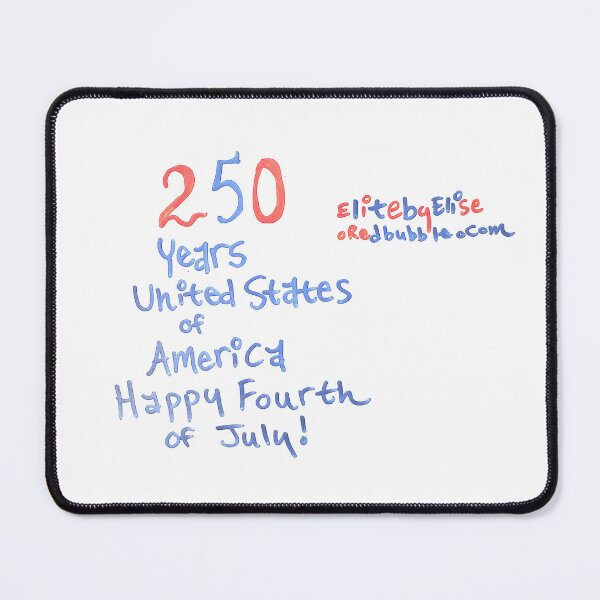 250
Years
United States
of
America
Happy Fourth
of July!
ElitebyElise
.Redbubble.com